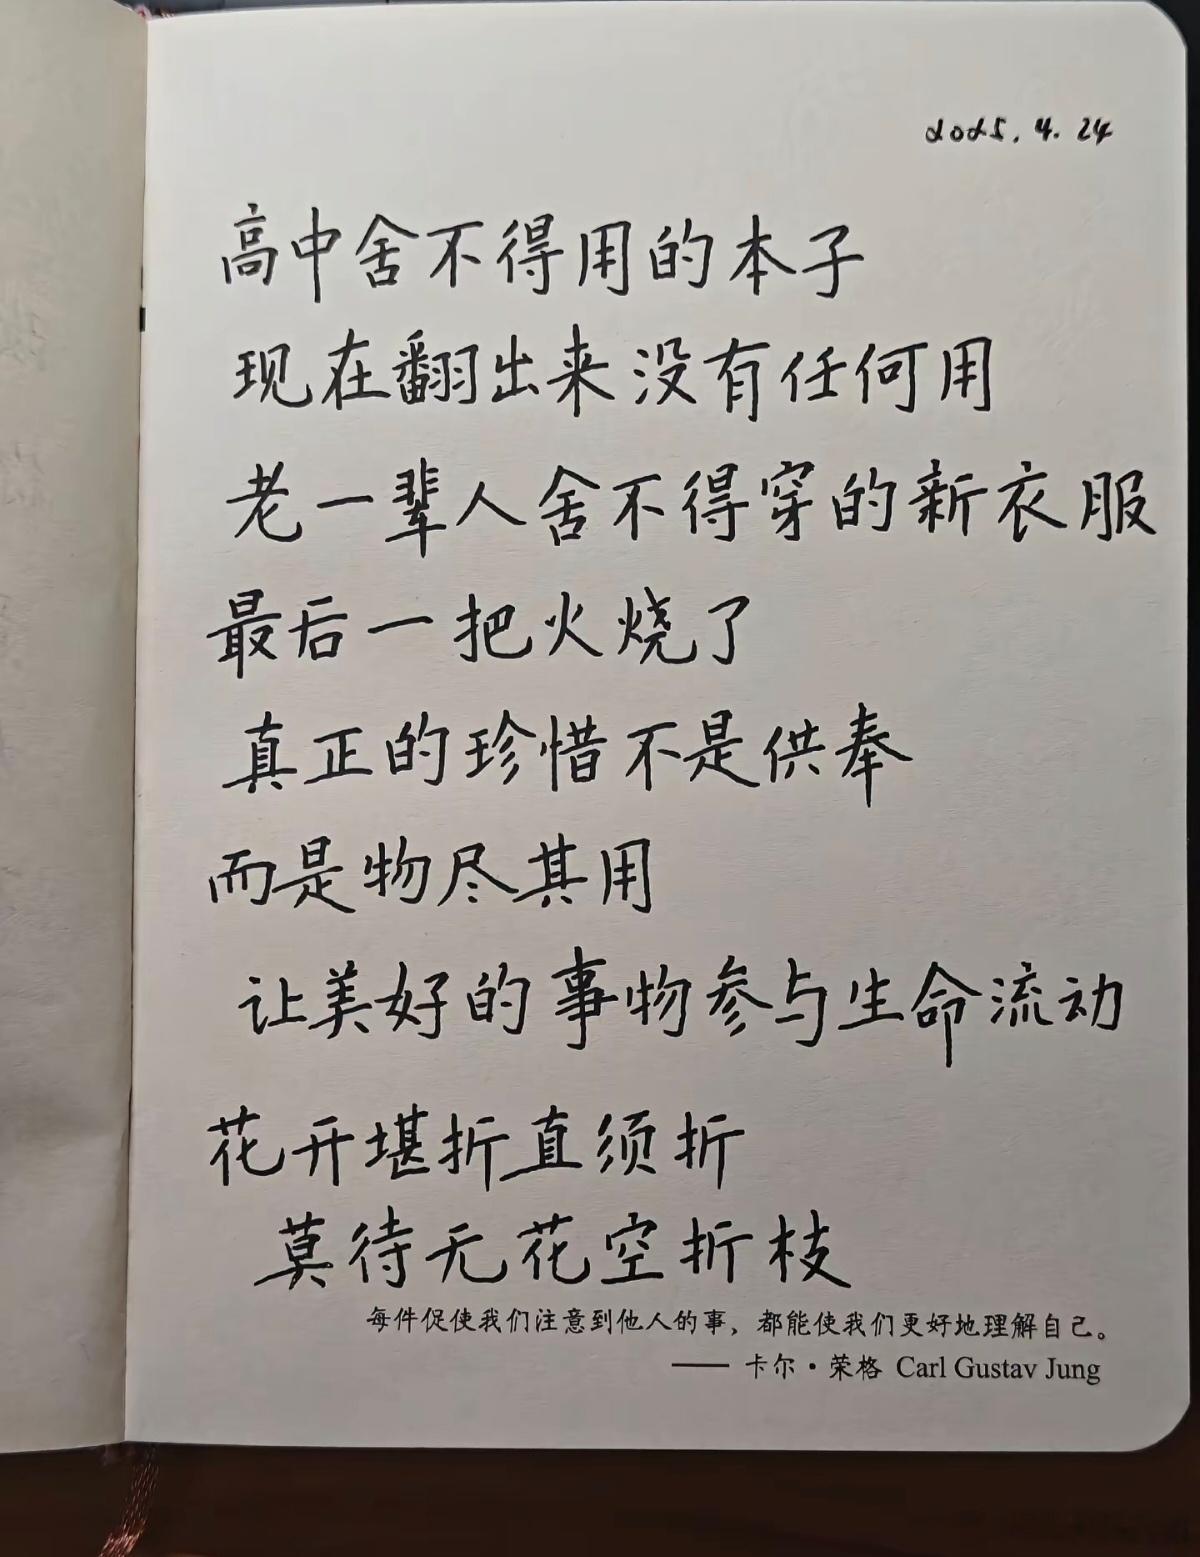 2025.4.24
高中舍不得用的本子
现在翻出来没有任何用
老一辈人舍不得穿的新衣服
最后一把火烧了
真正的珍惜不是供奉
而是物尽其用
让美好的事物参与生命流动
花开堪折直须折
莫待无花空折枝
每件促使我们注意到他人的事，都能使我们更好地理解自己。
—— 卡尔·荣格 Carl Gustav Jung